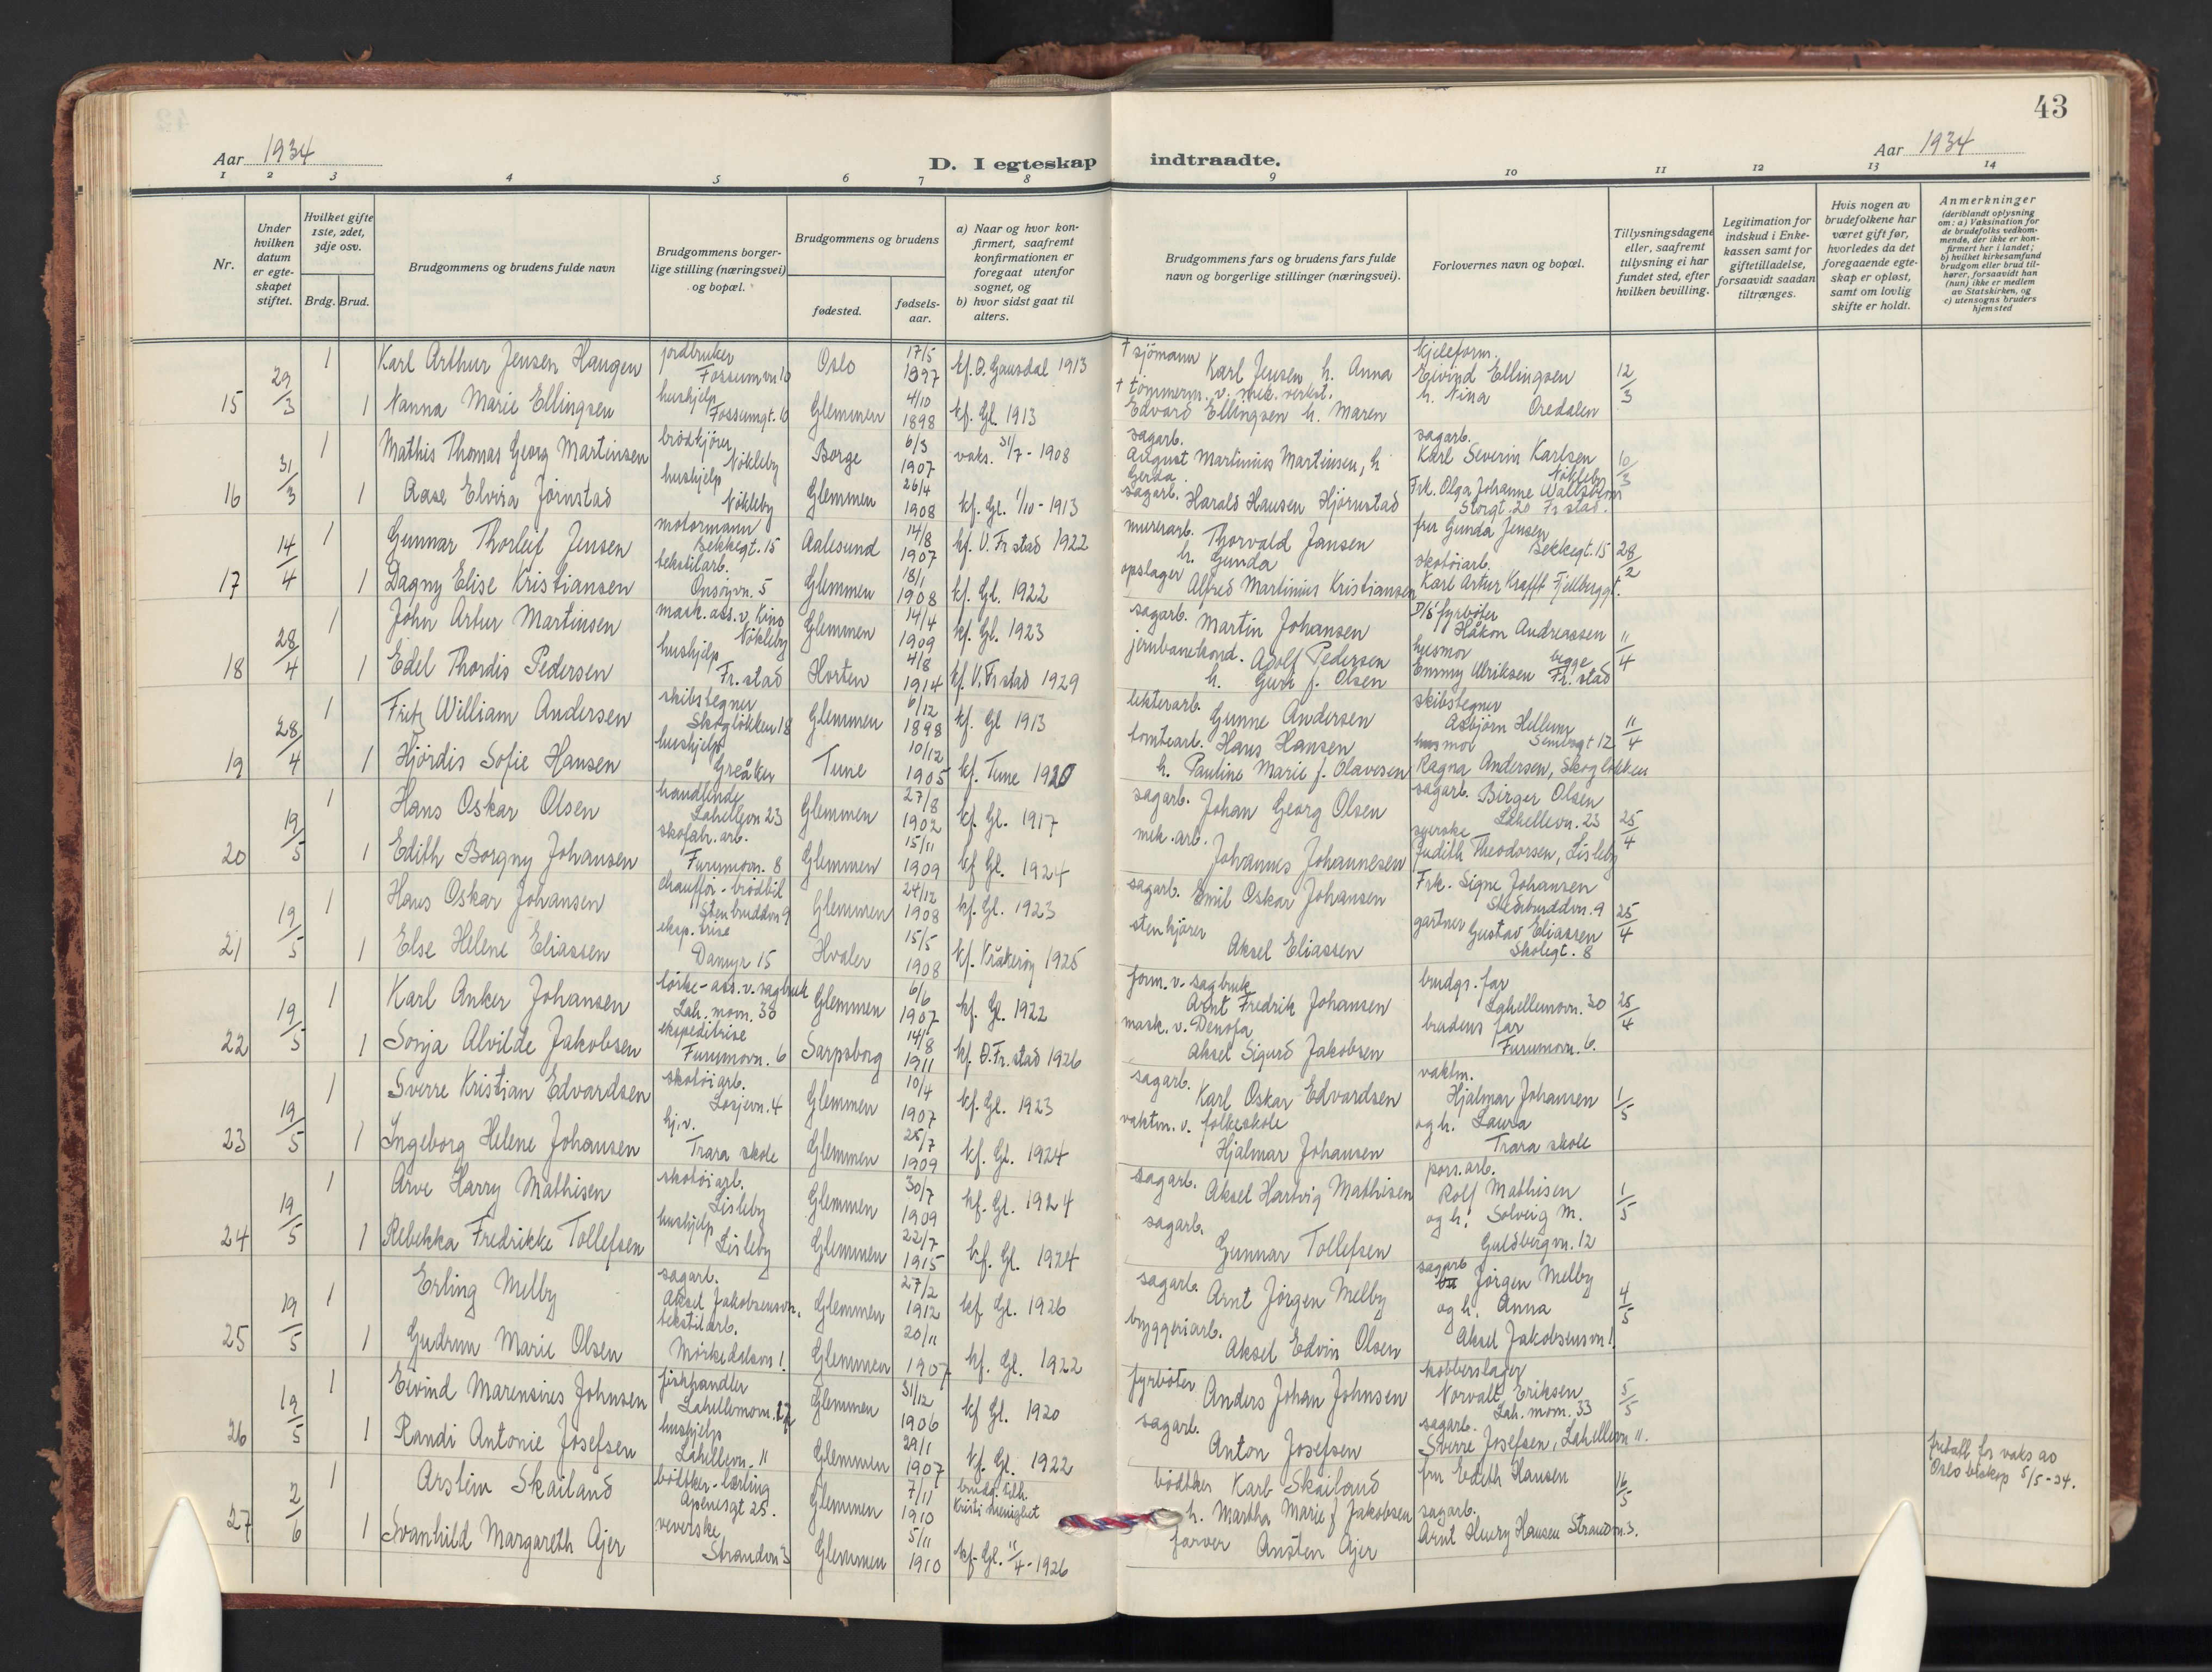 43
Aar 1934
D. I egteskap indtraadte.
Aar 1934
1 2 3 4 5 6 7 8 9 10 11 12 13 14
Nr.
Under hvilken datum er egteskapet stiftet.
Hvilket gifte 1ste, 2det, 3dje osv.
Brdg. Brud.
Brudgommens og brudens fulde navn
Brudgommens borgerlige stilling (næringsvei) og bopæl.
Brudgommens og brudens
fødested.
fødselsaar.
a) Naar og hvor konfirmert, saafremt konfirmationen er foregaat utenfor sognet, og
b) hvor sidst gaat til alters.
Brudgommens fars og brudens fars fulde navn og borgerlige stillinger (næringsvei).
Forlovernes navn og bopæl.
Tillysningsdagene eller, saafremt tillysning ei har fundet sted, efter hvilken bevilling.
Legitimation for indskud i Enkekassen samt for giftetilladelse, forsaavidt saadan tiltrænges.
Hvis nogen av brudefolkene har været gift før, hvorledes da det foregaaende egteskap er opløst, samt om lovlig skifte er holdt.
Anmerkninger
(deriblandt oplysning om: a) Vaksination for de brudefolks vedkommende, der ikke er konfirmert her i landet; b) hvilket kirkesamfund brudgom eller brud tilhører, forsaavidt han (hun) ikke er medlem av Statskirken, og c) utensogns bruders hjemsted
15 29/3 1 Karl Arthur Jensen Haugen jordbruker Fossumvn 10 Oslo 17/5 1897 kf. Ø. Gausdal 1913 † sjömann Karl Jensen h. Anna kjeleform. Eivind Ellingsen h. Nina Oredalen 12/3
1 Nanna Marie Ellingsen hushjelp Fossumgt. 10 Glemmen 4/10 1898 kf. Gl. 1913 † tömmerm. v. mek. verkst. Edvard Ellingsen h. Maren
16 31/3 1 Mathis Thomas Georg Martinsen brödkjörer Nökleby Borge 6/3 1907 vaks. 31/7 - 1908 sagarb. August Martinius Martinsen, h. Gerda sagarb. Karl Severin Karlsen Nökleby 10/3
1 Aase Elvira Jörnstad hushjelp Nökleby Glemmen 26/4 1908 kf. Gl. 1/10 - 1913 sagarb. Harald Hansen Hjörnstad Frk. Olga Johanne Waltsblom Storgt. 20 Fr.stad.
17 14/4 1 Gunnar Thorleif Jensen motormann Bekkegt. 15 Aalesund 14/8 1907 kf. V. Fr.stad 1922 murerarb. Thorvald Jansen h. Gunda fru Gunda Jensen Bekkegt. 15 28/2
1 Dagny Elise Kristiansen tekstilarb. Onsöyvn. 5 Glemmen 18/1 1908 kf. Gl. 1922 opslager Alfred Martinius Kristiansen skotöiarb. Karl Artur Krafft Fjellberggt.
18 28/4 1 John Artur Martinsen mask. ass. v. Kino Nökleby Glemmen 14/4 1909 kf. Gl. 1923 sagarb. Martin Johansen D/S fyrböter Håkon Andreassen 11/4
1 Edel Thordis Pedersen hushjelp Fr.stad Horten 4/8 1914 kf. V. Fr.stad 1929 jernbanekond. Adolf Pedersen h. Guri f. Olsen husmor Emmy Ulriksen begge Fr.stad
19 28/4 1 Fritz William Andersen skibstegner Skoglökken 18 Glemmen 6/12 1898 kf. Gl 1913 lekterarb. Gunne Andersen skibstegner Asbjörn Hellum Sembsgt 12 11/4
1 Hjördis Sofie Hansen hushjelp Greåker Tune 10/12 1905 kf. Tune 1920 tomtearb. Hans Hansen h. Pauline Marie f. Olavesen husmor Ragna Andersen, Skoglökken
20 19/5 1 Hans Oskar Olsen handlende Lahellevn 23 Glemmen 27/8 1902 kf. Gl. 1917 sagarb. Johan Georg Olsen sagarb. Birger Olsen Lahellevn. 23 25/4
1 Edith Borgny Johansen skofabr. arb. Furumovn. 8 Glemmen 15/11 1909 kf Gl. 1924 mek. arb. Johannes Johannesen syerske Judith Theodorsen, Lisleby
21 19/5 1 Hans Oskar Johansen chaufför - brödbil Stenbruddvn 9 Glemmen 24/12 1908 kf. Gl. 1923 sagarb. Emil Oskar Johansen Frk. Signe Johansen Stenbruddvn. 9 25/4
1 Else Helene Eliassen eksp. trise Damyr 15 Hvaler 15/5 1908 kf. Kråkeröy 1925 stenkjörer Aksel Eliassen gartner Gustav Eliassen Skolegt. 8
22 19/5 1 Karl Anker Johansen törke-ass. v. sagbruk Lah. movn. 33 Glemmen 6/6 1907 kf. Gl. 1922 form. v. sagbruk Arnt Fredrik Johansen brudgs. far Lahellemovn. 30 25/4
1 Sonja Alvilde Jakobsen ekspeditrise Furumovn. 6 Sarpsborg 14/8 1911 kf. Ø. Fr.stad 1926 mask. v. Denofa Aksel Sigurd Jakobsen brudens far Furumovn. 6.
23 19/5 1 Sverre Kristian Edvardsen skotöiarb. Losjevn. 4 Glemmen 10/4 1907 kf. Gl. 1923 sagarb. Karl Oskar Edvardsen vaktm. Hjalmar Johansen og h. Laura Trara skole 1/5
1 Ingeborg Helene Johansen hj. v. Trara skole Glemmen 25/7 1909 kf. Gl. 1924 vaktm. v. folkeskole Hjalmar Johansen
24 19/5 1 Arve Harry Mathisen skotöiarb. Lisleby Glemmen 30/7 1909 kf. Gl. 1924 sagarb. Aksel Hartvig Mathisen pors. arb. Rolf Mathisen og h. Solveig M. Guldbergvn. 12 1/5
1 Rebekka Fredrikke Tollefsen hushjelp Lisleby Glemmen 22/7 1915 kf. Gl. 1924 sagarb. Gunnar Tollefsen
25 19/5 1 Erling Melby sagarb. Aksel Jakobsensvn. Glemmen 27/2 1912 kf Gl. 1926 sagarb. Arnt Jörgen Melby sagarb Jörgen Melby og h. Anna Aksel Jakobsensvn 1 4/5
1 Gudrun Marie Olsen tekstilarb. Mörkedalsvn 1. Glemmen 20/11 1907 kf. Gl. 1922 bryggeriarb. Aksel Edvin Olsen
26 19/5 1 Eivind Marensius Johnsen fiskhandler Lahellemovn. Glemmen 31/12 1906 kf Gl. 1920 fyrböter Anders Johan Johnsen kobberslager Norvalt Eriksen Lah. mom. 33 5/5
1 Randi Antonie Josefsen hushjelp Lahellevn. 11 Glemmen 29/1 1907 kf. Gl. 1922 sagarb. Anton Josefsen sagarb. Sverre Josefsen, Lahellevn 11.
27 2/6 1 Arstein Skailand bödker-lærling Apenesgt 25. Glemmen 7/11 1910 brudg. tilh. Kristi menighet bödker Karl Skailand h. Martha Marie f Jakobsen fru Edith Hansen 16/5 fritatt for vaks av Oslo biskop 5/5-34.
1 Svanhild Margareth Ajer veverske Strandvn 3 Glemmen 5/11 1910 kf. Gl. 11/4 - 1926 farver Ansten Ajer sagarb. Arnt Henry Hansen Strandvn. 3.